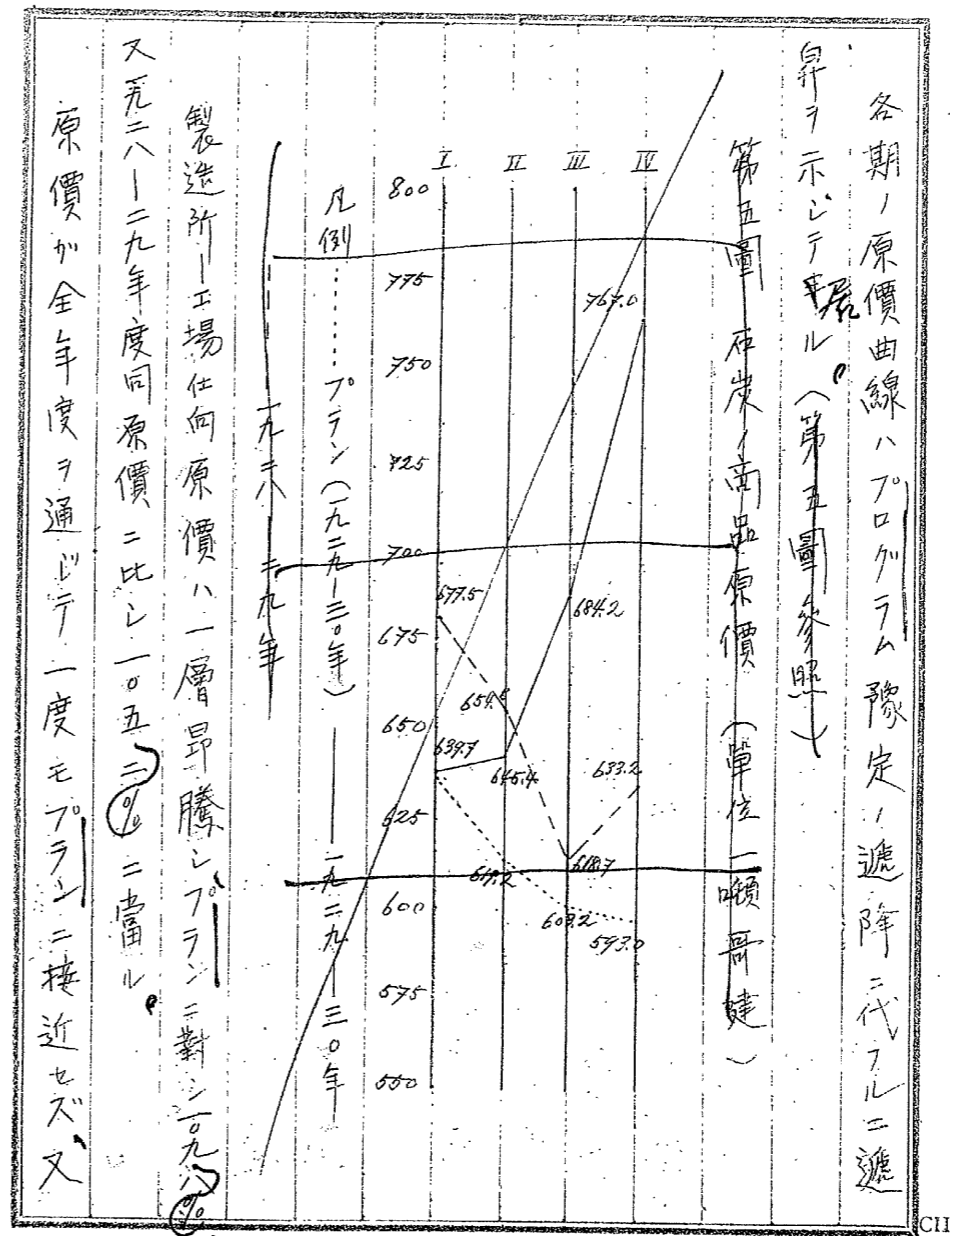 各期ノ原價曲線ハプログラム豫定ノ遞降ニ代フルニ遞
昇ヲ示シテ居ル。（第五圖參照）
第五圖 石炭ノ商品原價（單位一噸哥建）
I II III IV
800
775
750
725
700
675
650
625
600
575
550
767.0
677.5
684.2
654.5
639.7
645.4
633.2
618.7
609.2
593.0
凡例……プラン（一九二九―三〇年）――一九二九―三〇年
一九二八―二九年
製造所―工場仕向原價ハ一層昻騰シプランニ對シ一〇九八%
又一九二八―二九年度同原價ニ比シ一〇五二%ニ當ル。
原價ガ全年度ヲ通ジテ一度モプランニ接近セズ、又
CII